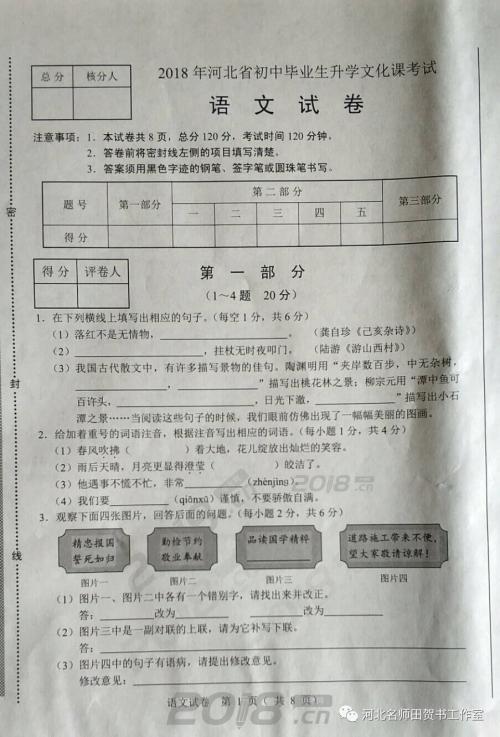 总分 核分人
2018 年河北省初中毕业生升学文化课考试
语 文 试 卷
注意事项：1．本试卷共 8 页，总分 120 分，考试时间 120 分钟。
2．答卷前将密封线左侧的项目填写清楚。
3．答案须用黑色字迹的钢笔、签字笔或圆珠笔书写。
题 号 第一部分 第 二 部 分 第三部分
一 二 三 四 五
得 分
得 分 评卷人
第 一 部 分
（1～4 题 20 分）
1．在下列横线上填写出相应的句子。（每空 1 分，共 6 分）
（1）落红不是无情物，。（龚自珍《己亥杂诗》）
（2），拄杖无时夜叩门。（陆游《游山西村》）
（3）我国古代散文中，有许多描写景物的佳句。陶渊明用“夹岸数百步，中无杂树，
，”描写出桃花林之景；柳宗元用“潭中鱼可
百许头，，日光下澈，”描写出小石
潭之景……当阅读这些句子的时候，我们眼前仿佛出现了一幅幅美丽的图画。
2．给加着重号的词语注音，根据注音写出相应的词语。（每小题 1 分，共 4 分）
（1）春风吹拂（ ）着大地，花儿绽放出灿烂的笑容。
（2）雨后天晴，月亮更显得澄莹（ ）皎洁了。
（3）他遇事不慌不忙，非常（zhènjìng）
（4）我们要（qiānxū）谨慎，不要骄傲自满。
3．观察下面四张图片，回答后面的问题。（每小题 2 分，共 6 分）
精忠报国 誓死如归
勤检节约 敬业奉献
品读国学精粹
道路施工带来不便， 望大家敬请谅解！
图片一 图片二 图片三 图片四
（1）图片一、图片二中各有一个错别字，请找出来并改正。
答：改为 改为
（2）图片三中是一副对联的上联，请为它补写下联。
答：
（3）图片四中的句子有语病，请提出修改意见。
修改意见：
语文试卷 第 1 页（共 8 页）
密
封
线
2018.cn
2018.cn
河北名师田贺书工作室